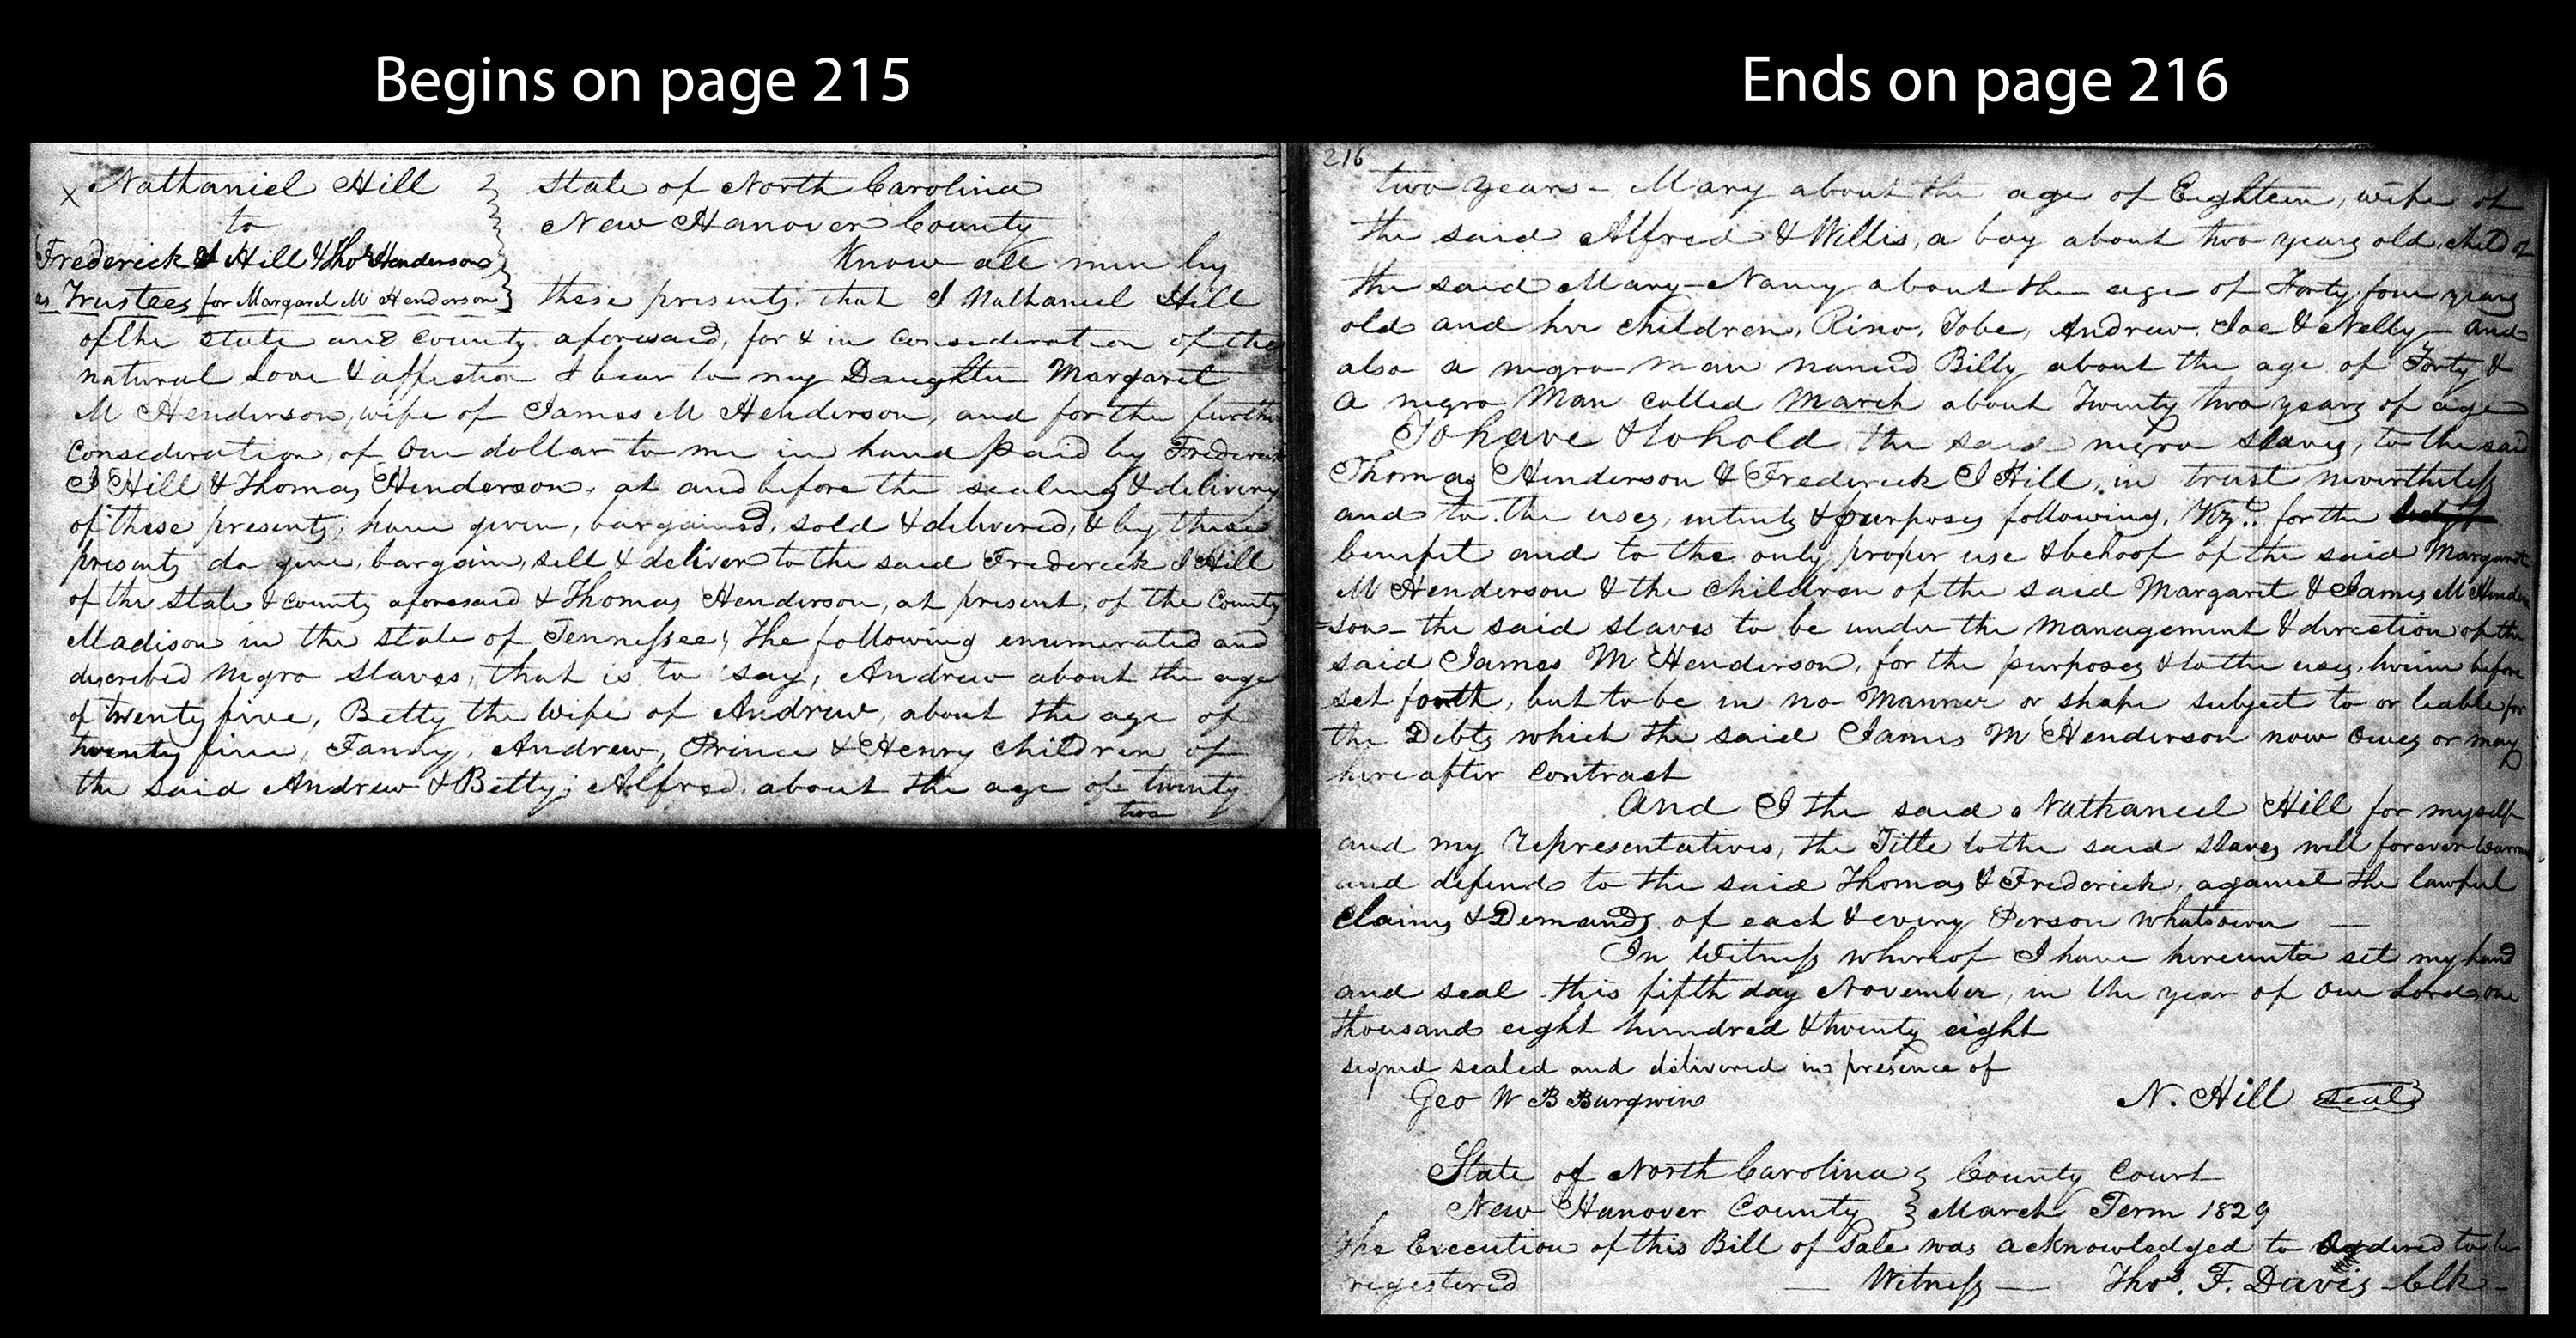 Begins on page 215
x Nathaniel Hill
to
Frederick J Hill & Thos Henderson
as Trustees for Margaret M Henderson
State of North Carolina
New Hanover County
Know all men by
these presents, that I Nathaniel Hill
of the state and County aforesaid, for & in Consideration of the
natural Love & affection I bear to my Daughter Margaret
M Henderson, wife of James M Henderson, and for the further
Consideration, of One dollar to me in hand paid by Frederick
J Hill & Thomas Henderson, at and before the sealing & delivery
of these presents, have given, bargained, sold & delivered, & by these
presents do give, bargain, sell & deliver to the said Frederick J Hill
of the State & County aforesaid & Thomas Henderson, at present, of the County
Madison in the State of Tennessee; The following enumerated and
described Negro Slaves, that is to say, Andrew about the age
of twenty five, Betty the Wife of Andrew, about the age of
twenty five, Fanny, Andrew, Prince & Henry Children of
the said Andrew & Betty; Alfred about the age of twenty
two
Ends on page 216
216
two years - Mary about the age of Eighteen, wife of
the said Alfred & Willis, a boy about two years old, child of
the said Mary - Nancy about the age of Forty four years
old and her children, Rino, Tobe, Andrew, Joe & Nelly - and
also a negro man named Billy about the age of Forty &
a negro Man called March about Twenty two years of age
To have & to hold the said negro slaves, to the said
Thomas Henderson & Frederick J Hill, in trust nevertheless
and to the uses, intents & purposes following, Vizt. for the
benefit and to the only proper use & behoof of the said Margaret
M Henderson & the Children of the said Margaret & James M Hender
=son - the said slaves to be under the Management & direction of the
said James M Henderson, for the purposes & to the uses, herein before
set forth, but to be in no Manner or shape subject to or liable for
the Debts which the said James M Henderson now Owes or may
hereafter Contract
And I the said Nathaniel Hill for myself
and my representatives, the Title to the said Slaves will forever Warrant
and defend to the said Thomas & Frederick, against the lawful
Claims & Demands of each & every Person whatsoever —
In Witness whereof I have hereunto set my hand
and seal this fifth day November, in the year of Our Lord, one
thousand eight hundred & twenty eight
signed sealed and delivered in presence of
Geo W B Burgwin
N. Hill seal
State of North Carolina } County Court
New Hanover County } March Term 1829
The Execution of this Bill of Sale was acknowledged to Ordered to be
registered — Witness — Thos. F. Davis Clk -